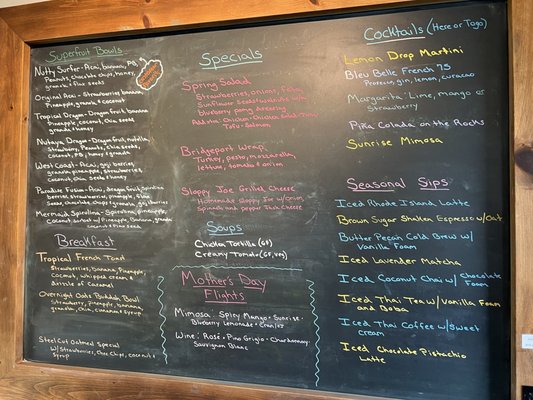 Superfruit Bowls
Nutty Surfer - Acai, banana, PB,
Peanuts, chocolate chips, honey,
granola + flax seeds
Original Acai - Strawberries, banana,
Pineapple, granola + coconut
Tropical Dragon - Dragonfruit, banana
Pineapple, coconut, Chia seed
granola + honey
Nutaya Dragon - Dragonfruit, nutella,
Strawberry, Peanuts, Chia seeds,
coconut, PB, honey + granola
West Coast - Acai, goji berries,
granola, pineapple, strawberries,
coconut, Chia seeds + honey
Paradise Fusion - Acai, dragonfruit, spirulina
berries, strawberries, pineapple, Chia
seeds, Chocolate chips, granola, goji berries
Mermaid Spirulina - Spirulina, pineapple,
coconut sorbet w/ Pineapple, Banana, granola
coconut + Chia seed
Breakfast
Tropical French Toast
Strawberries, banana, Pineapple,
Coconut, whipped cream +
drizzle of Caramel
Overnight Oats Buddah Bowl
Strawberry, Pineapple, banana,
granola, Chia, cinnamon + syrup
Steel Cut Oatmeal Special
w/ Strawberries, Choc Chips, coconut +
Syrup
Specials
Spring Salad
Strawberries, onions, feta,
Sunflower seeds
blueberry pomg dressing
Add ita: Chicken - Chicken Salad - Tuna
Tofu - Salmon
Bridgeport Wrap
Turkey, pesto, mozzarella,
lettuce, tomato + onion
Sloppy Joe Grilled Cheese
Homemade Sloppy Joe w/ onion,
Spinach and pepper Jack Cheese
Soups
Chicken Tortilla (GF)
Creamy Tomato (GF, V)
Mother's Day
Flights
Mimosa: Spicy Mango - Sunrise -
Blueberry Lemonade -
Wine: Rosé - Pino Grigio - Chardonnay
Sauvignon Blanc
Cocktails (Here or To go)
Lemon Drop Martini
Bleu Belle French 75
Prosecco, gin, lemon, curacao
Margarita - Lime, mango or
Strawberry
Piña Colada on the Rocks
Sunrise Mimosa
Seasonal Sips
Iced Rhode Island Latte
Brown Sugar Shaken Espresso w/ Oat
Butter Pecan Cold Brew w/
Vanilla Foam
Iced Lavender Matcha
Iced Coconut Chai w/ Chocolate
Foam
Iced Thai Tea w/ Vanilla Foam
and Boba
Iced Thai Coffee w/ Sweet
Cream
Iced Chocolate Pistachio
Latte